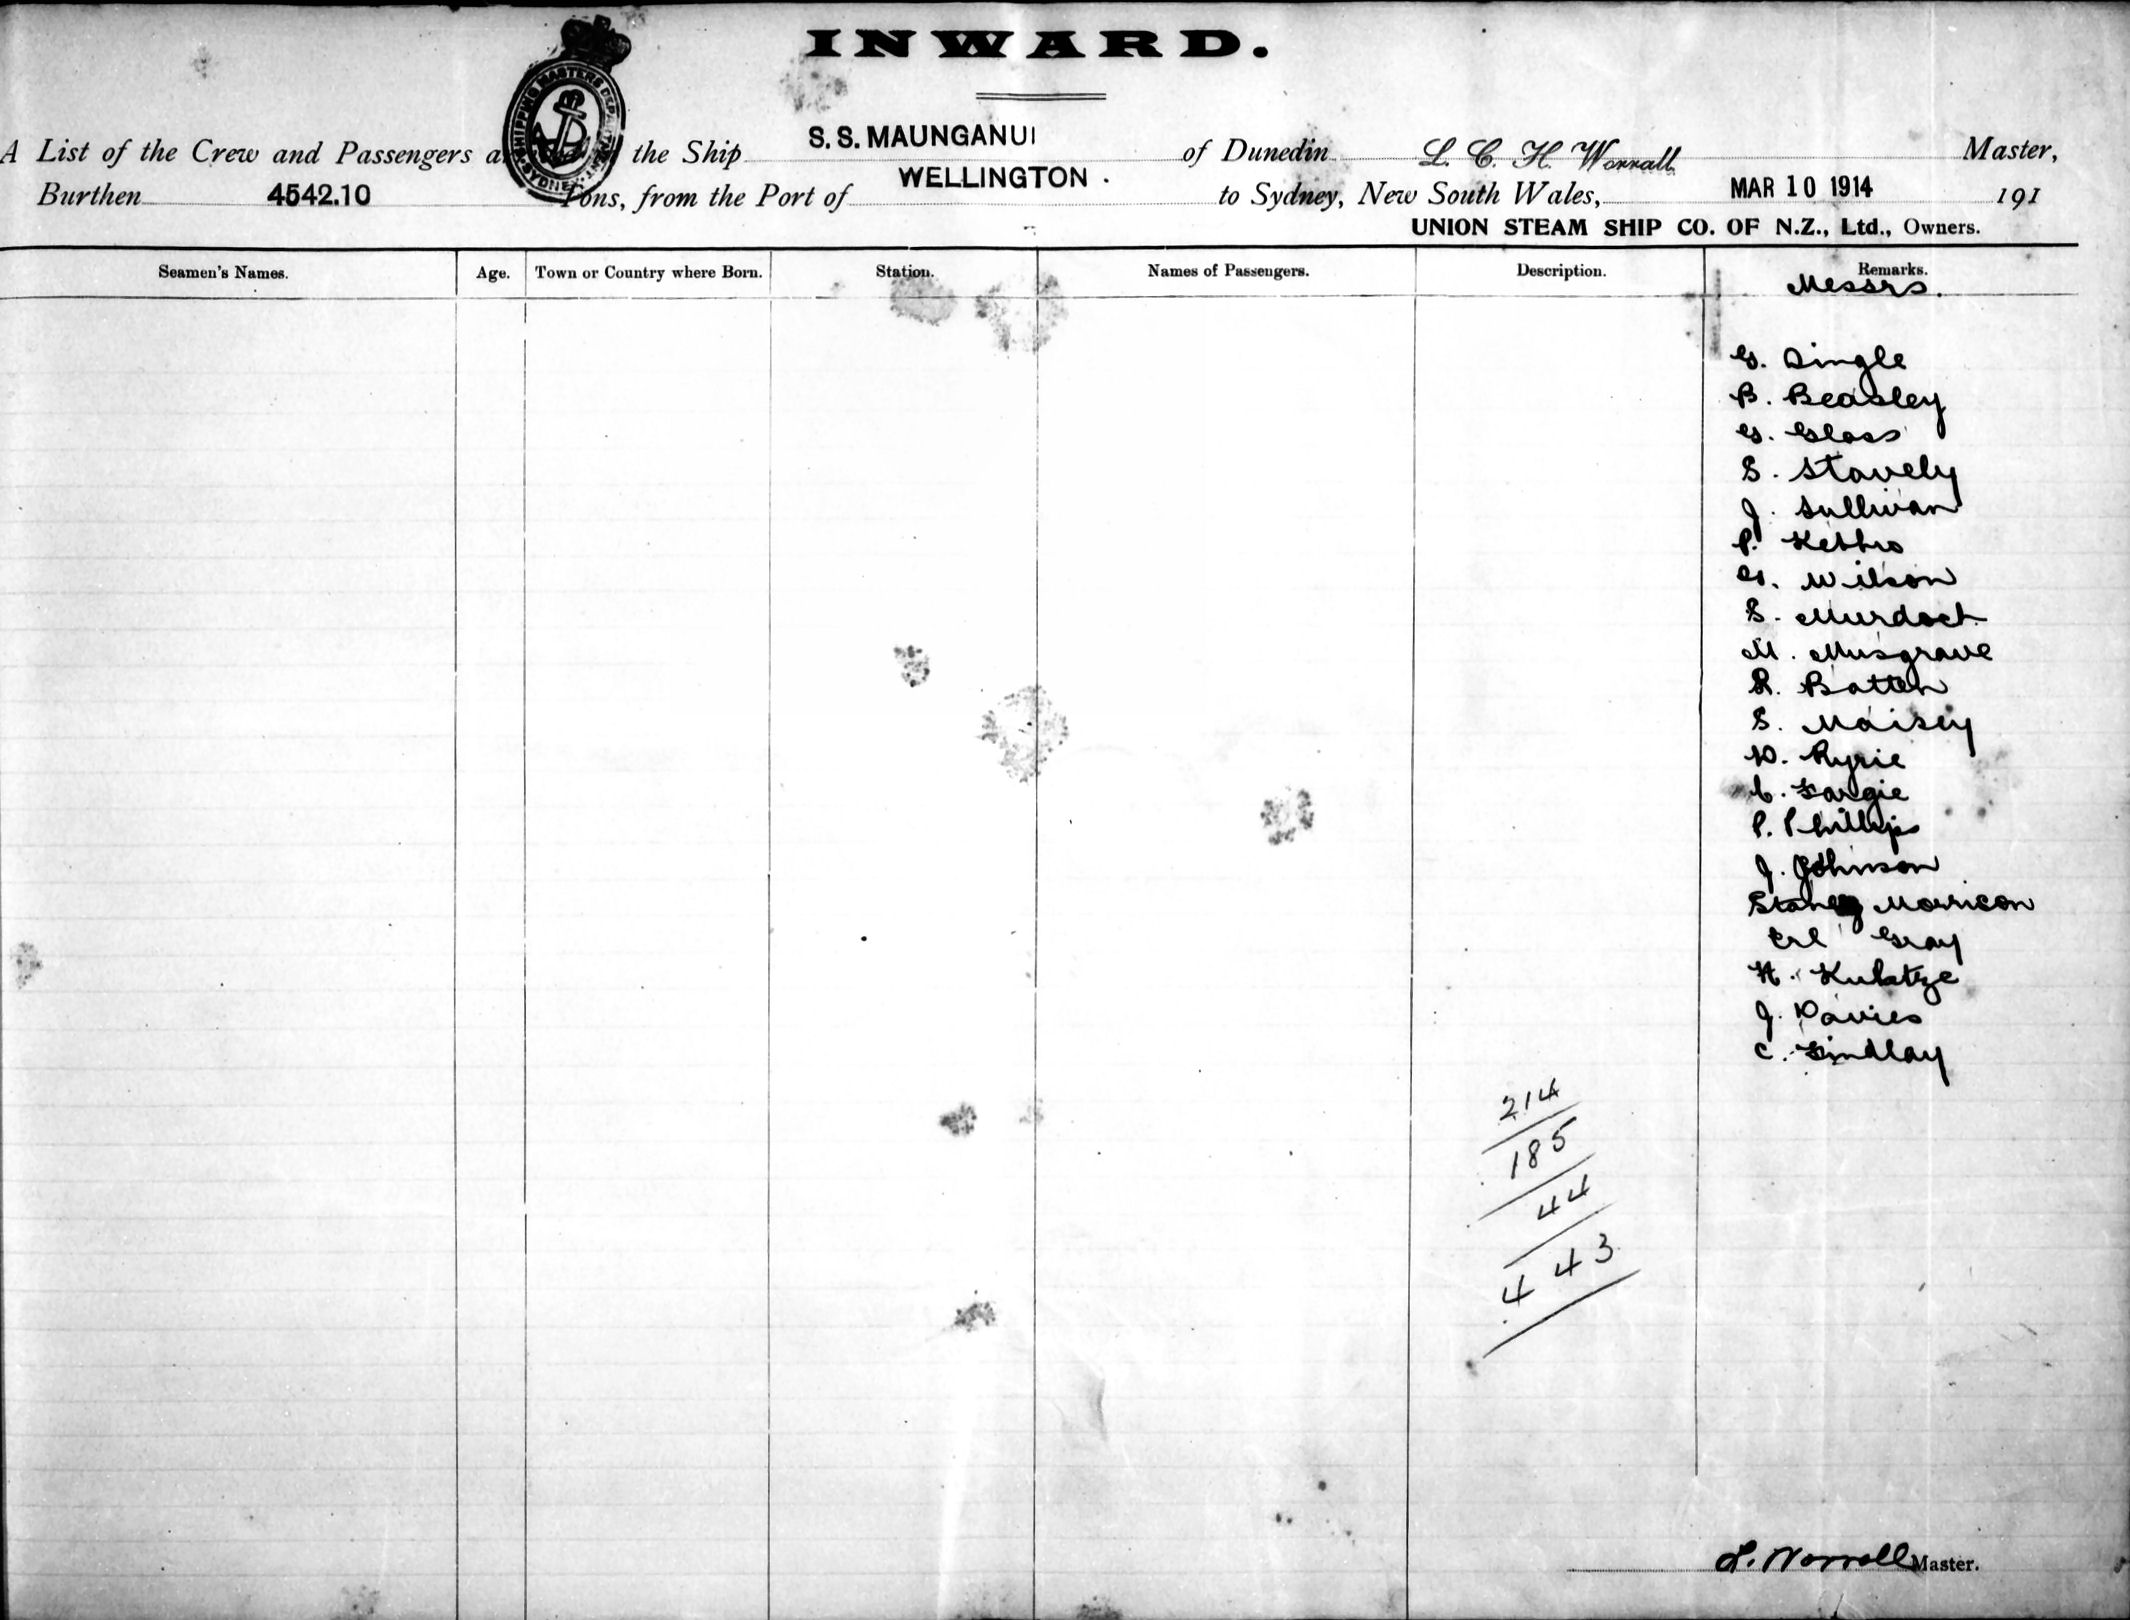 INWARD.
SHIPPING MASTERS DEPARTMENT. SYDNEY
A List of the Crew and Passengers the Ship S.S. MAUNGANUI of Dunedin L. C. H. Worrall Master,
Burthen 4542.10 Tons, from the Port of WELLINGTON . to Sydney, New South Wales, MAR 10 1914 191
UNION STEAM SHIP CO. OF N.Z., Ltd., Owners.
Seamen's Names. Age. Town or Country where Born. Station. Names of Passengers. Description. Remarks.
Messrs.
G. Dingle
B. Beasley
G. Glass
S. Stavely
J. Sullivan
P.
G. Wilson
S. Murdoch
M. Musgrave
R. Batten
S. Maisey
D. Ryrie
C. Fargie
P. Phillips
J. Johnson
Stanley Morrison
Erl Gray
H. Kubatze
J. Davies
C. Findlay
214
185
44
443
L. Worrall Master.